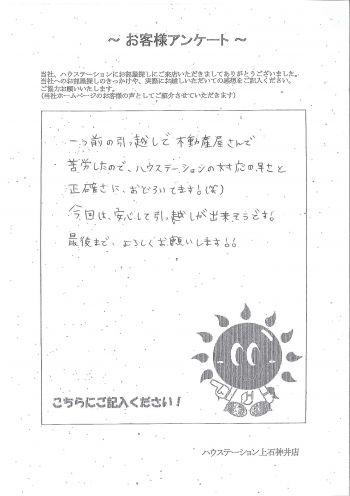 ～ お客様アンケート ～
当社、ハウステーションにお部屋探しにご来店いただきましてありがとうございました。
当社へのお部屋探しのきっかけや、実際にお越しいただいての感想をご記入ください。
ご協力お願いいたします。
(当社ホームページのお客様の声としてご紹介させていただきます)
一つ前の引っ越しで不動産屋さんで
苦労したので、ハウステーションの対応の早さと
正確さに、おどろいてます!(笑)
今回は、安心して引っ越しが出来そうです。
最後まで、よろしくお願いします!!
こちらにご記入ください!
ハウステーション上石神井店